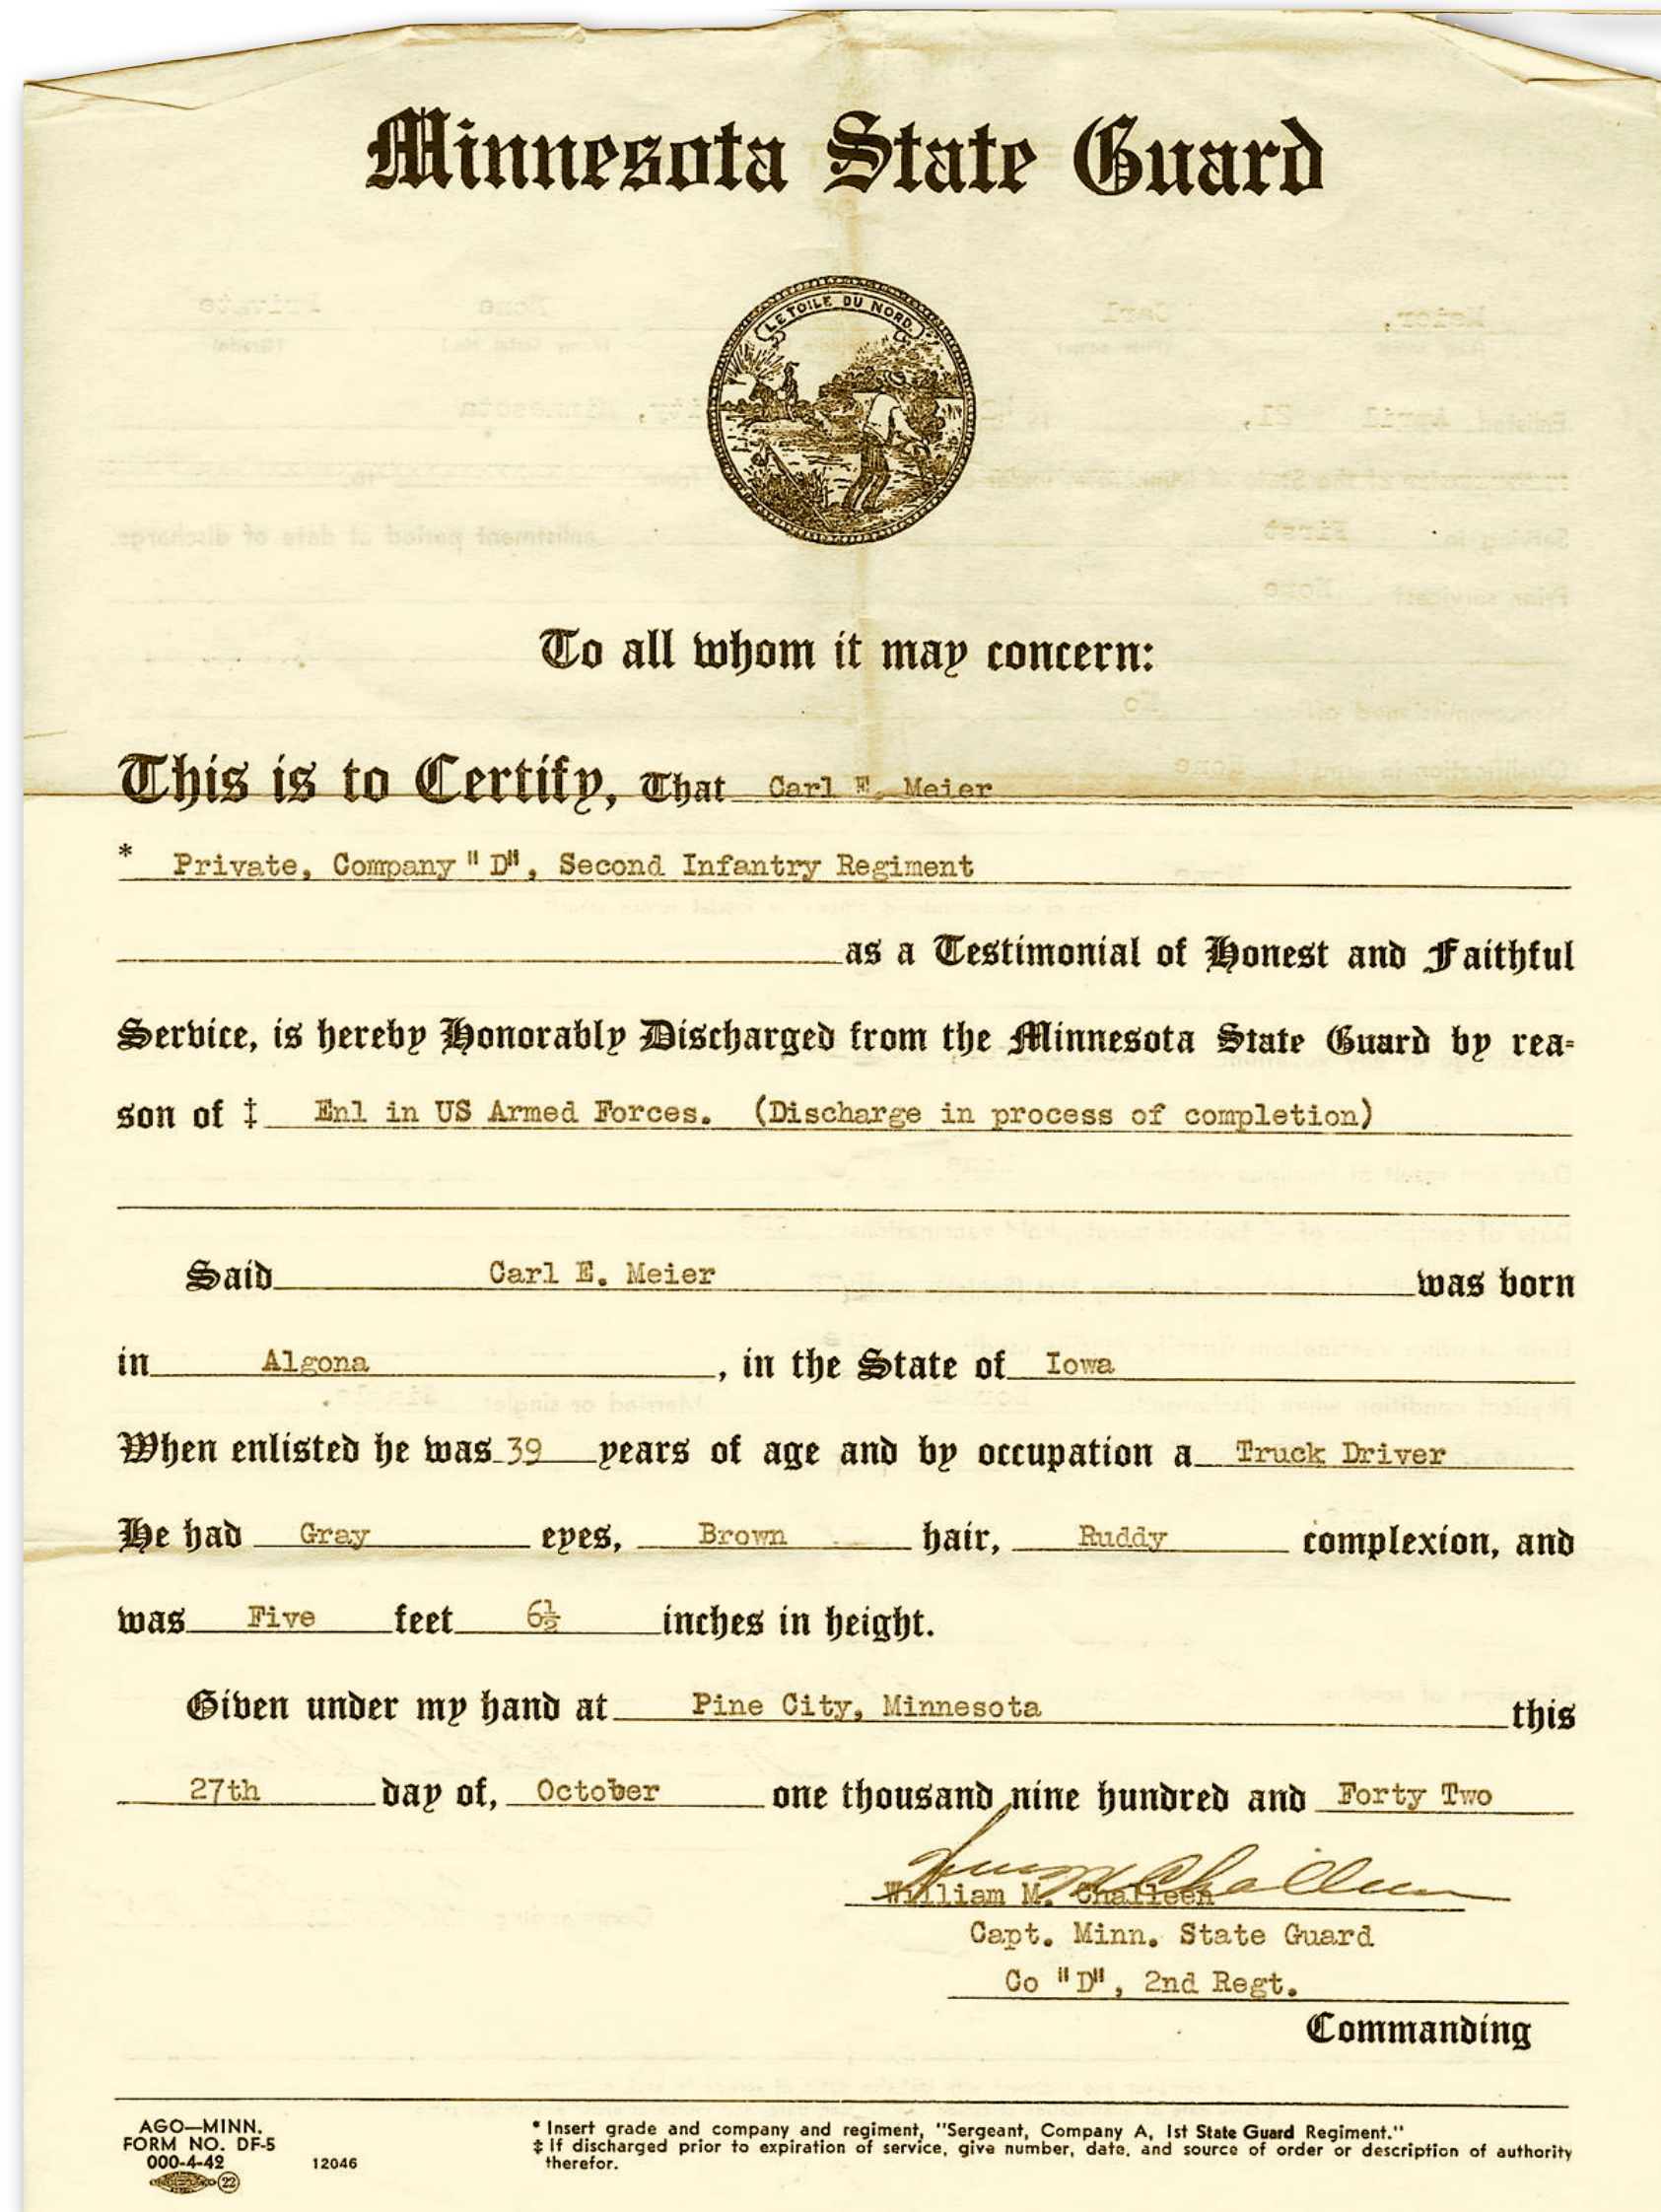 Minnesota State Guard
L'ETOILE DU NORD.
To all whom it may concern:
This is to Certify, That Carl E. Meier
* Private, Company "D", Second Infantry Regiment
as a Testimonial of Honest and Faithful
Service, is hereby Honorably Discharged from the Minnesota State Guard by rea=
son of ‡ Enl in US Armed Forces. (Discharge in process of completion)
Said Carl E. Meier was born
in Algona, in the State of Iowa
When enlisted he was 39 years of age and by occupation a Truck Driver
He had Gray eyes, Brown hair, Ruddy complexion, and
was Five feet 6½ inches in height.
Given under my hand at Pine City, Minnesota this
27th day of, October one thousand nine hundred and Forty Two
William M. Challeen
Capt. Minn. State Guard
Co "D", 2nd Regt.
Commanding
AGO—MINN.
FORM NO. DF-5
000-4-42
12046
22
* Insert grade and company and regiment, "Sergeant, Company A, 1st State Guard Regiment."
‡ If discharged prior to expiration of service, give number, date, and source of order or description of authority
therefor.